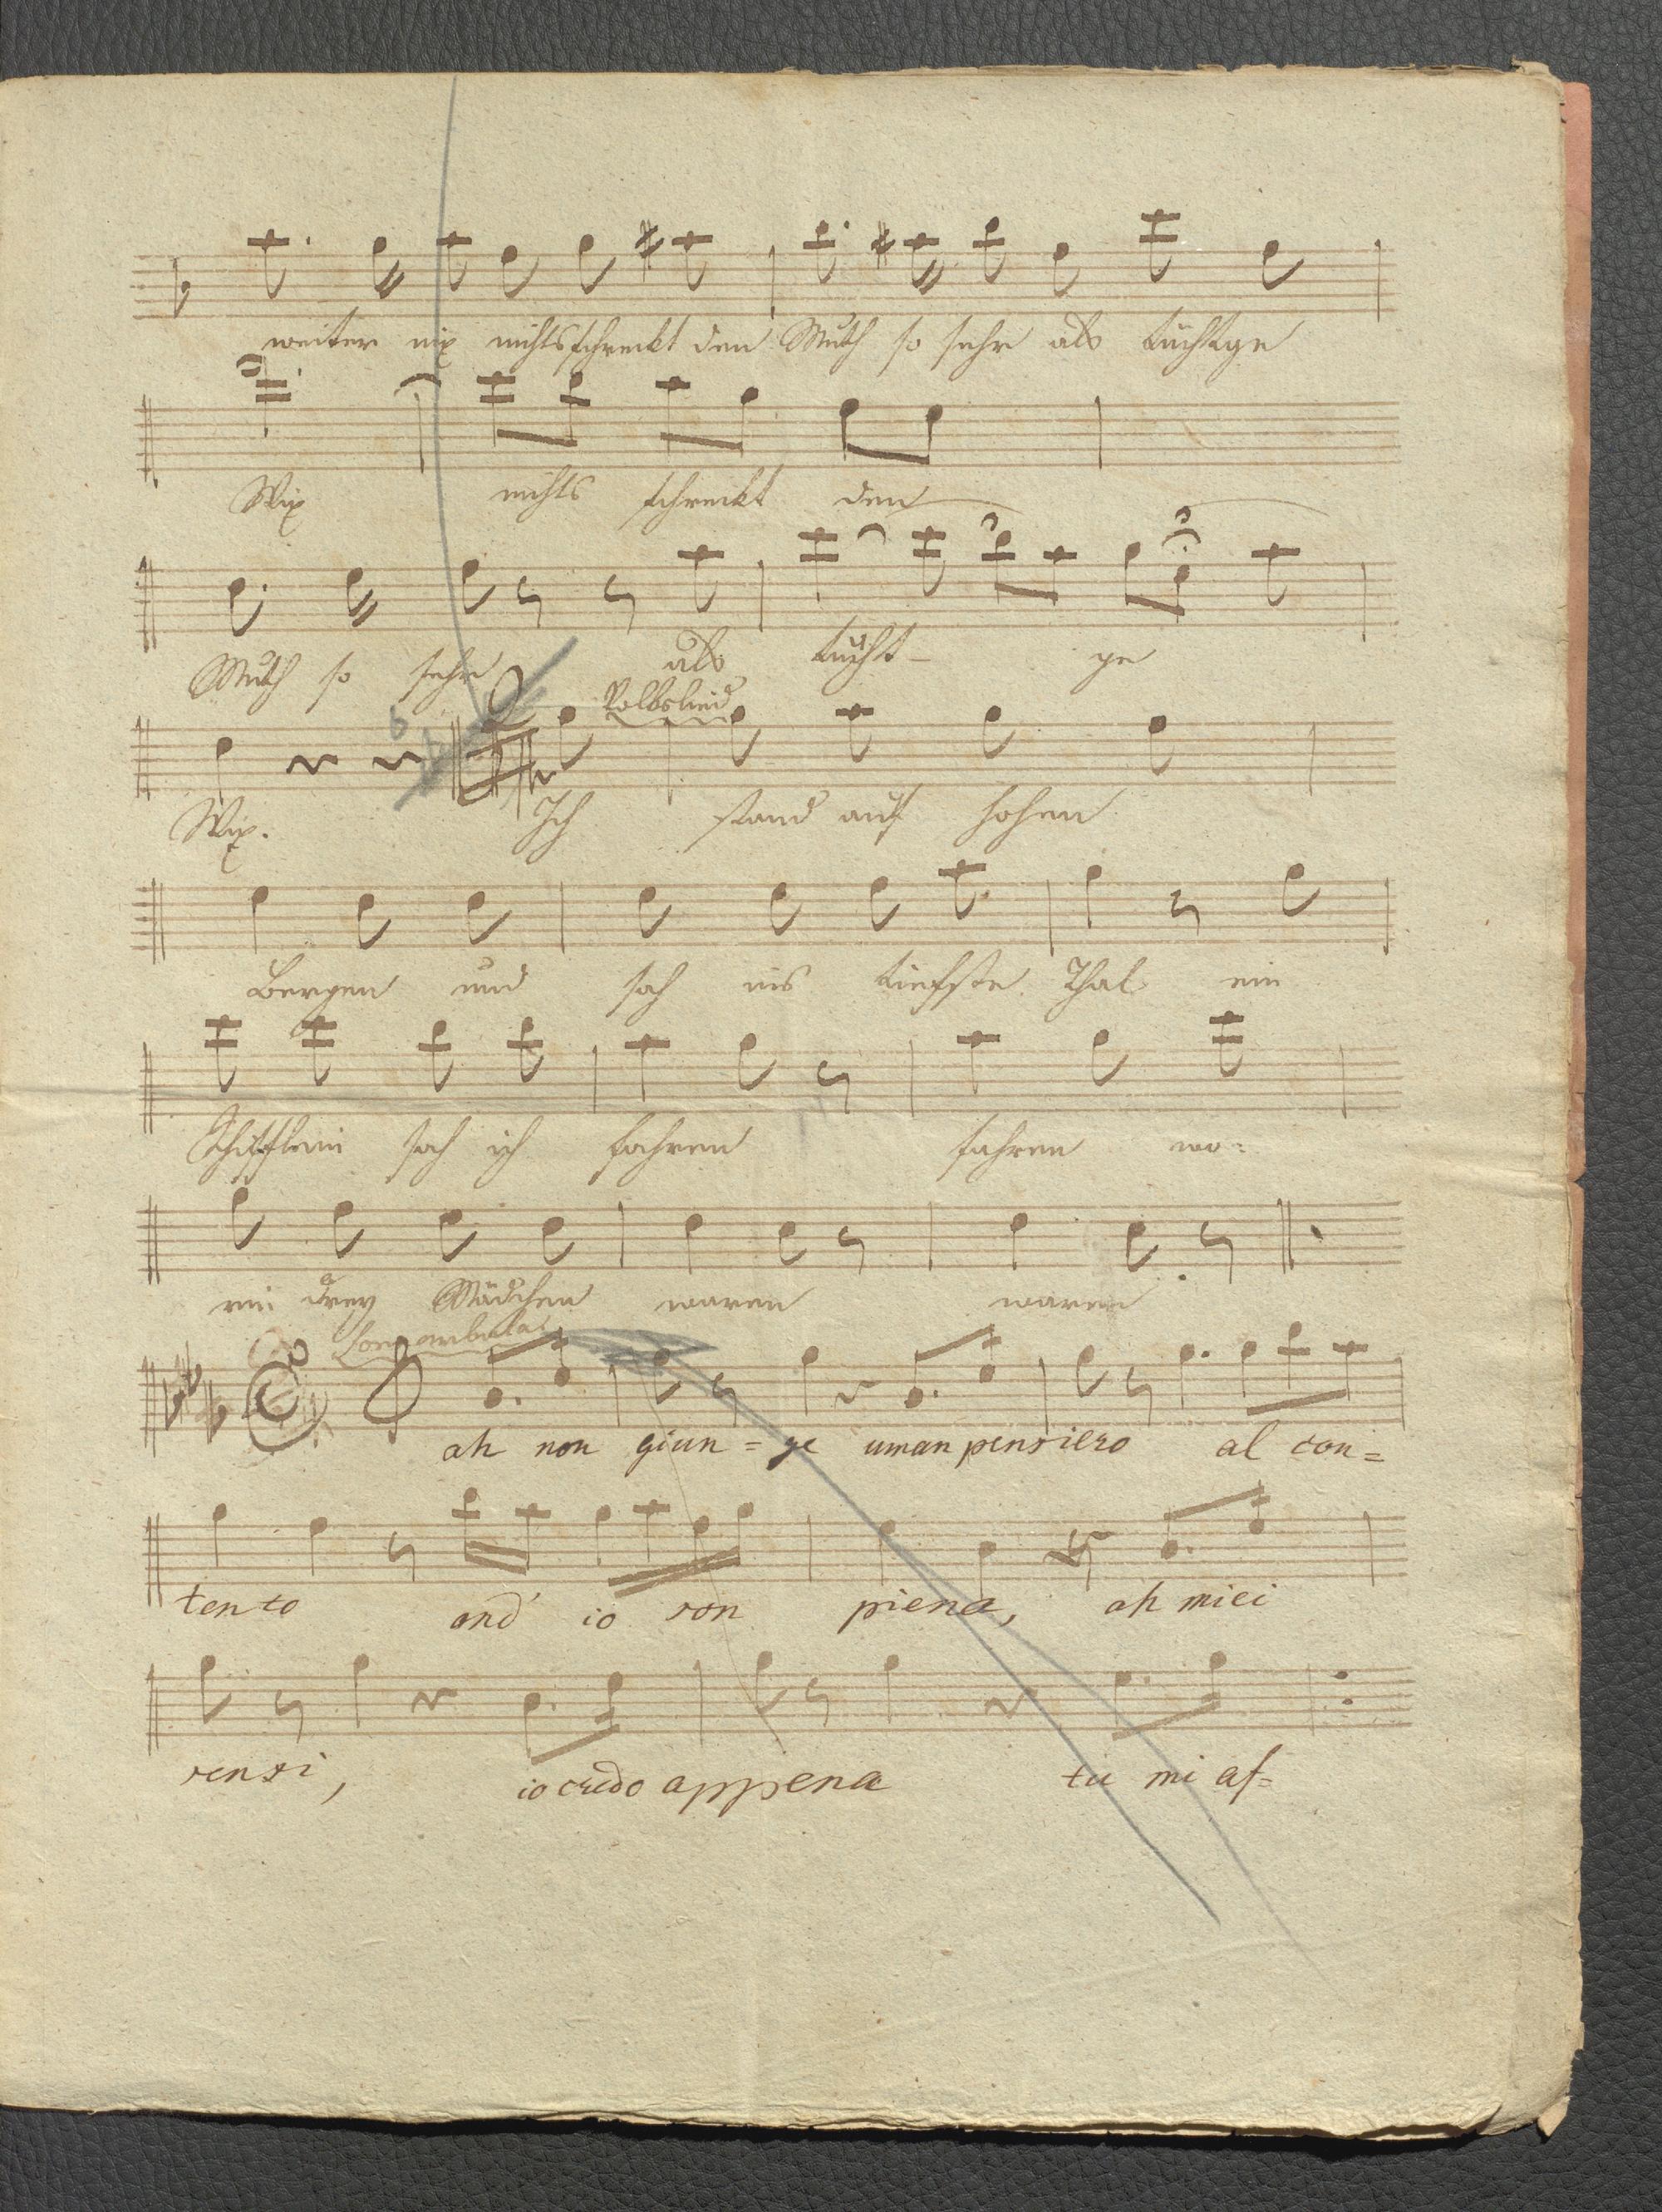 weiter nix nichts schreckt den Muth so sehr als tücht'ge
Wix nichts schreckt den
Muth so sehr als tücht- ge
Volkslied
Wix. Ich stand auf hohen
Bergen und sah ins tiefste Thal ein
Schifflein sah ich fahren fahren wo=
rin drey Mädchen waren waren
ah non giun = ge uman pensiero al con=
tento ond' io son piena, ah miei
sensi, io credo appena tu mi af=